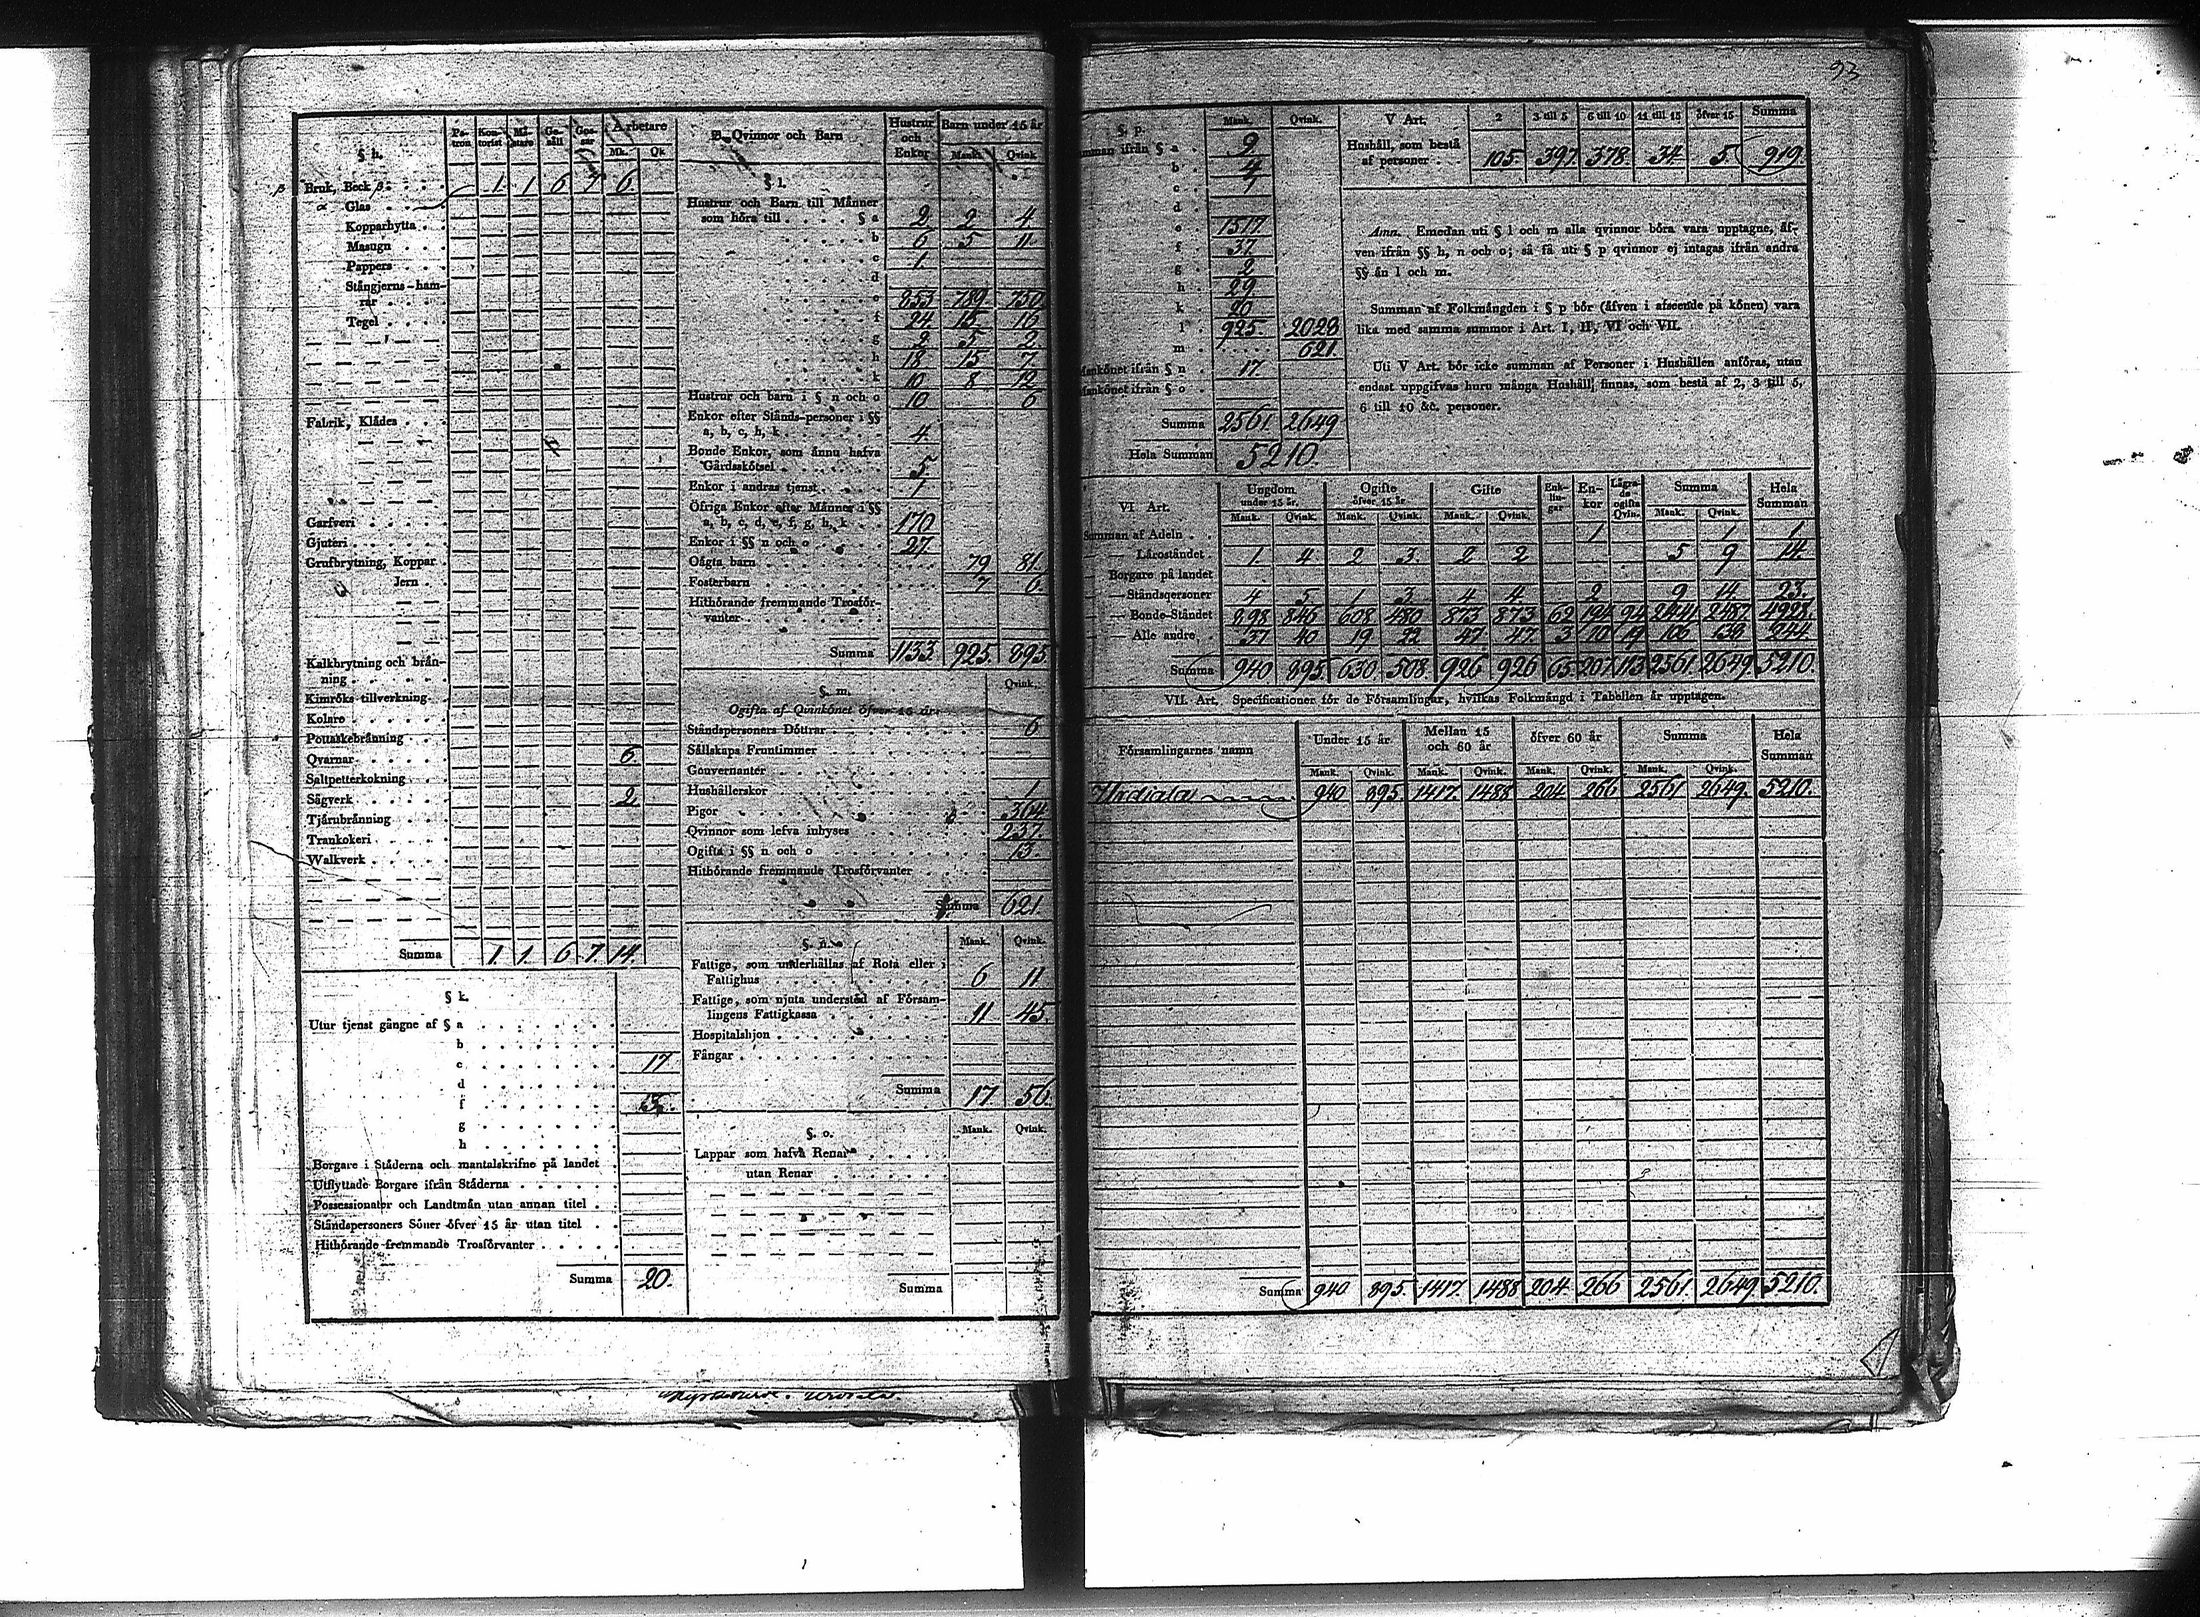 93
§ h. Pa-tron Kon-torist Mä-stare Ge-säll Gos-sar Arbetare Mk. Qk
β Bruk, Beck β. 1. 1 6 7 6.
α Glas
Kopparhytta
Masugn
Pappers
Stångjerns-ham-
rar
Tegel
Fabrik, Klädes
Garfveri
Gjuteri
Grufbrytning, Koppar
Jern
Kalkbrytning och brän-
ning
Kimröks tillverkning
Kolare
Pottaskebränning
Qvarnar 6.
Saltpetterkokning
Sågverk 2
Tjärubränning
Trankokeri
Walkverk
Summa 1. 1. 6 7. 14.
§ k.
Utur tjenst gångne af § a
b
c 17
d
f 3.
g
h
Borgare i Städerna och mantalskrifne på landet
Utflyttade Borgare ifrån Städerna
Possessionater och Landtmän utan annan titel
Ståndspersoners Söner öfver 15 år utan titel
Hithörande fremmande Trosförvanter
Summa 20.
B. Qvinnor och Barn Hustrur och Enkor Barn under 15 år Mank. Qvink
§ l.
Hustrur och Barn till Männer
som höra till § a 2 2 4.
b 6 5 11
c 1.
d
e 853 789 750
f 24 15 16
g 2 5 2
h 18 15 7
k 10 8 12
Hustrur och barn i § n och o 10 6
Enkor efter Stånds-personer i §§
a, b, c, h, k 4.
Bonde Enkor, som ännu hafva
Gårdsskötsel 5
Enkor i andras tjenst 1
Öfriga Enkor efter Männer i §§
a, b, c, d, e, f, g, h, k 170
Enkor i §§ n och o 27.
Oägta barn 79 81.
Fosterbarn 7 6.
Hithörande fremmande Trosför-
vanter
Summa 1133 925. 895
§. m. Qvink.
Ogifta af Qvinkönet öfver 15 år:
Ståndspersoners Döttrar 6
Sällskaps Fruntimmer
Gouvernanter
Hushållerskor 1
Pigor 364
Qvinnor som lefva inhyses 237.
Ogifta i §§ n och o 13.
Hithörande fremmande Trosförvanter
Summa 621.
§. n. Mank. Qvink.
Fattige, som underhållas af Rota eller i
Fattighus 6 11
Fattige, som njuta understöd af Försam-
lingens Fattigkassa 11 45.
Hospitalshjon
Fångar
Summa 17 56.
§. o. Mank. Qvink.
Lappar som hafva Renar
utan Renar
Summa
§. p. Mank. Qvink.
Summan ifrån § a 9
b 4
c 7
d
e 1517.
f 37
g 2
h 29
k 20
l 925. 2028
m 621
Mankönet ifrån § n 17
Mankönet ifrån § o
Summa 2561. 2649
Hela Summan 5210.
V Art. 2 3 till 5 6 till 10 11 till 15 öfver 15 Summa
Hushåll, som bestå
af personer 105. 397. 378. 34. 5 919.
Anm. Emedan uti § l och m alla qvinnor böra vara upptagne, äf-
ven ifrån §§ h, n och o; så få uti § p qvinnor ej intagas ifrån andra
§§ än l och m.
Summan af Folkmängden i § p bör (äfven i afseende på könen) vara
lika med samma summor i Art. I, II, VI och VII.
Uti V Art. bör icke summan af Personer i Hushållen anföras, utan
endast uppgifvas huru många Hushåll finnas, som bestå af 2, 3 till 5,
6 till 10 &c. personer.
VI Art. Ungdom under 15 år. Ogifte öfver 15 år Gifte Enk-lin-gar En-kor Lägra-de ogifta Qvin. Summa Hela Summan
Mank. Qvink. Mank. Qvink. Mank. Qvink. Mank. Qvink.
Summan af Adeln 1 1 1
— Läroståndet 1. 4 2 3. 2 2 5 9 14.
— Borgare på landet
— Ståndspersoner 4 5 1 3 4 4 2 9 14 23.
— Bonde-Ståndet 898 846 608 480 873 873 62 194 94 2441 2487 4928.
— Alle andre 37 40 19 22 47 47 3 10 19 106 138 244.
Summa 940 895 630. 508. 926 926 65 207 113 2561 2649 5210.
VII. Art. Specificationer för de Församlingar, hvilkas Folkmängd i Tabellen är upptagen.
Församlingarnes namn Under 15 år Mellan 15 och 60 år öfver 60 år Summa Hela Summan
Mank. Qvink. Mank. Qvink. Mank. Qvink. Mank. Qvink.
Urdiala 940 895. 1417. 1488 204 266 2561 2649. 5210.
Summa 940 895. 1417. 1488 204 266 2561 2649 5210.